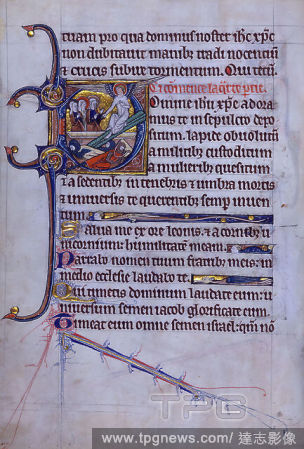 tuam pro qua dominus noster ihc xpc
non dubitauit manibz tradi nocentiu
& crucis subire tormentum. Qui tecu.
Ci comence la quarte
Omine ihu xpe adora
mus te in sepulcro depo
situm. lapide obuolutu
a militibz custoditum
a mulieribz quesitum
& a sedentibz in tenebris & umbra mortis
& uniuersis te querentibz semp inuen
tum
Salua me ex ore leonis. & a cornibz u
nicornium: humilitatem meam.
Narrabo nomen tuum fratribz meis: in
medio ecclesie laudabo te
Qui timetis dominum laudate eum: u
niuersum semen iacob glorificate eum
Timeat eum omne semen israel: qm no
TPG
www.tpgnews.com/ 達志影像